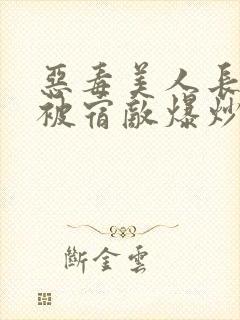 惡毒美人長
被宿敵爆炒
斷金雲